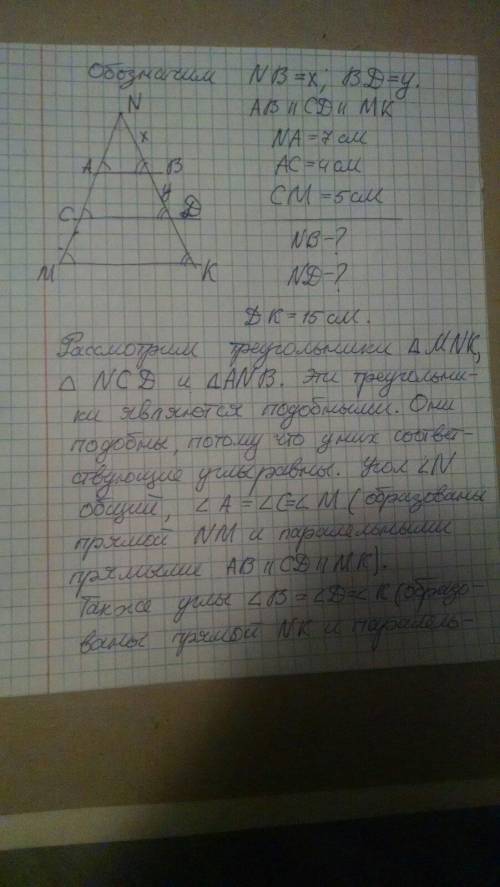 Обозначим NB=x; BD=y.
N
AB || CD || MK
x
NA=7см
A
B
AC=4см
y
CM=5см
C
D
NB-?
M
K
ND-?
DK=15см.
Рассмотрим треугольники △MNK,
△ NCD и △ANB. Эти треугольни-
ки являются подобными. Они
подобны, потому что у них соответ-
ствующие углы равны. Угол ∠N
общий, ∠A=∠C=∠M (образованы
прямой NM и паралельными
прямыми AB || CD || MK).
Также углы ∠B=∠D=∠K (образо-
ваны прямой NK и паралель-